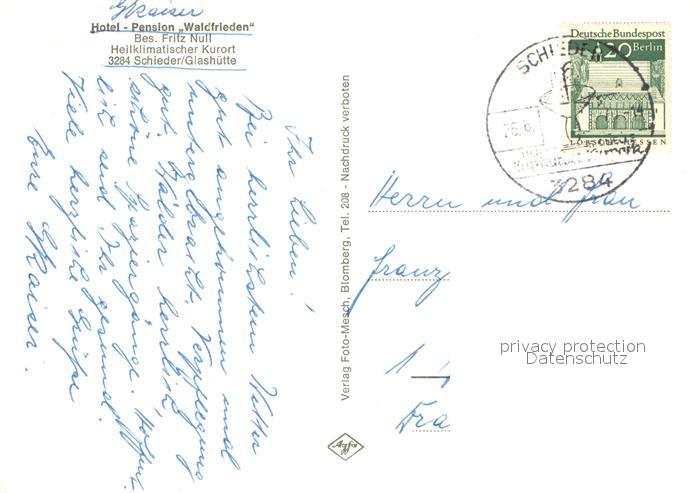 G Kaiser
Hotel - Pension „Waldfrieden"
Bes. Fritz Null
Heilklimatischer Kurort
3284 Schieder/Glashütte
Ihr Lieben!
Bei herrlichstem Wetter
gut angekommen und
untergebracht. Verpflegung
gut, Wälder herrlich,
schöne Spaziergänge. Hoffent-
lich sind Ihr gesund
Viele herzliche Grüße
Eure G Kaiser.
Verlag Foto-Mesch, Blomberg, Tel. 208 - Nachdruck verboten
Agfa
Deutsche Bundespost
20 Berlin
LORSCH/HESSEN
SCHIEDER
26.6.
3284
Herrn und Frau
Franz
1
privacy protection
Datenschutz